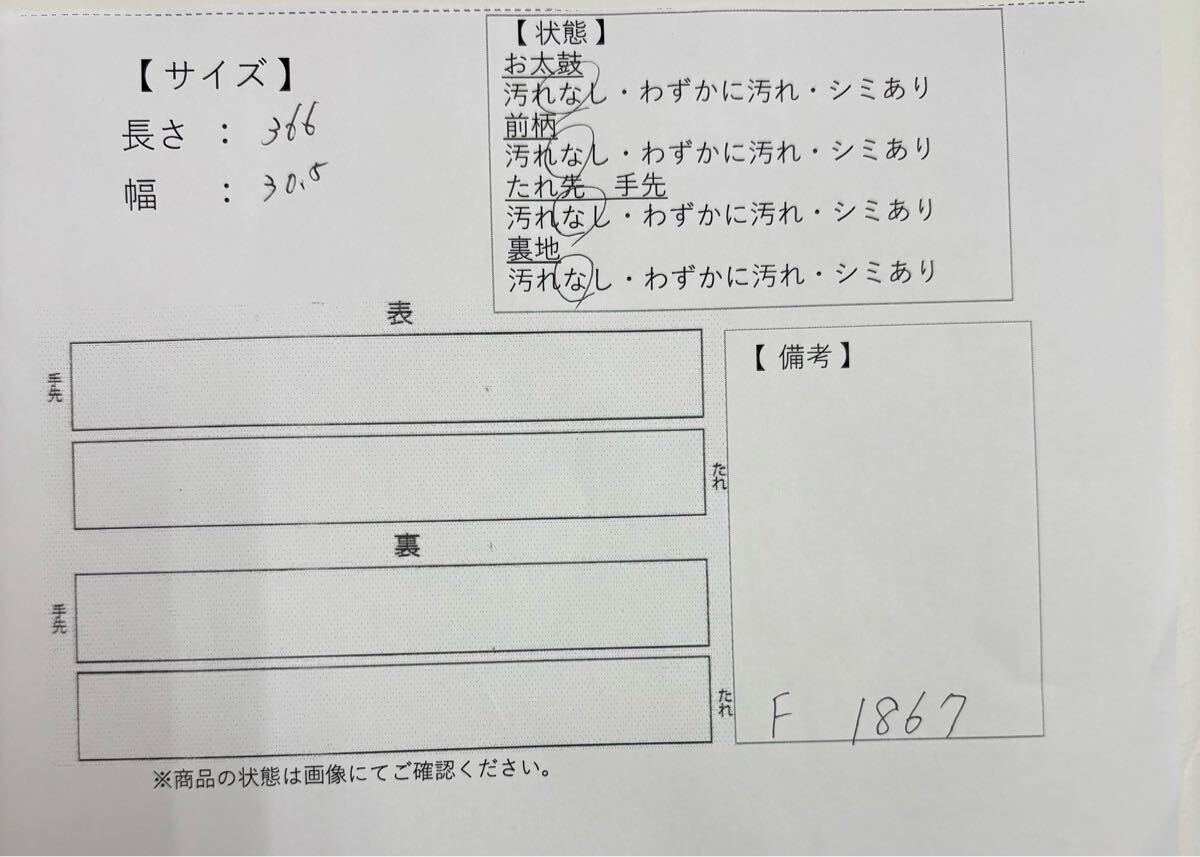 【 サイズ 】
長さ ： 366
幅 ： 30.5
【 状態 】
お太鼓
汚れなし・わずかに汚れ・シミあり
前柄
汚れなし・わずかに汚れ・シミあり
たれ先 手先
汚れなし・わずかに汚れ・シミあり
裏地
汚れなし・わずかに汚れ・シミあり
表
手先
たれ
裏
手先
たれ
【 備考 】
F 1867
※商品の状態は画像にてご確認ください。